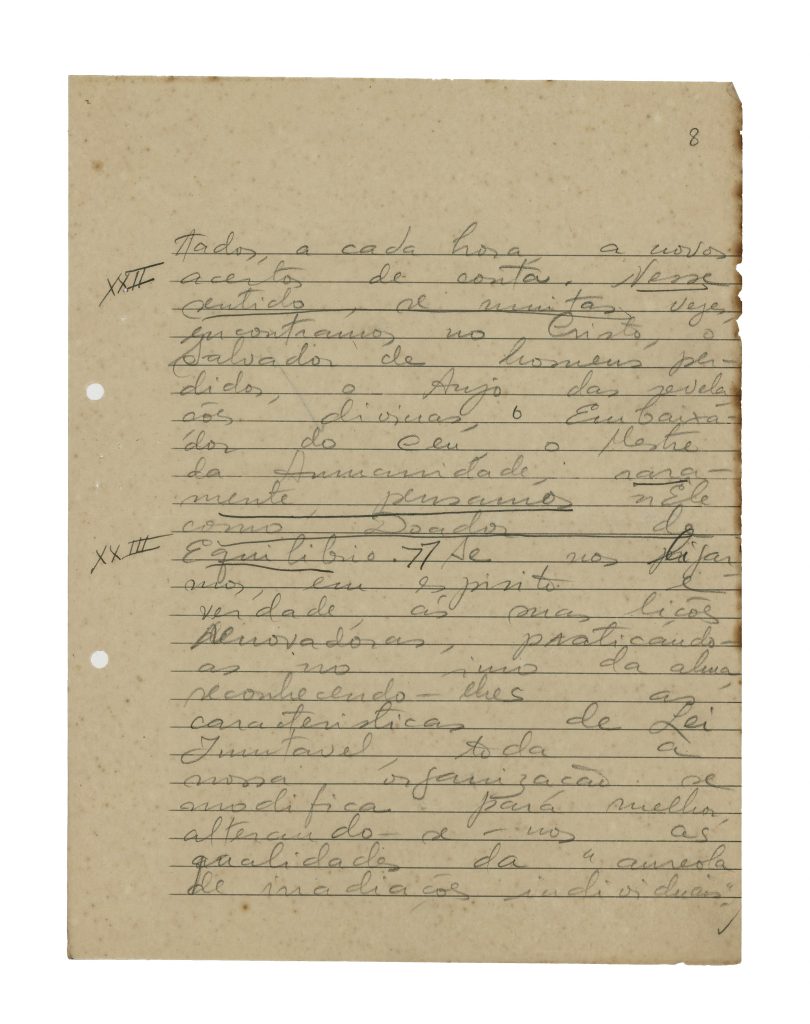 8
tados, a cada hora, a novos
XXII acertos de conta. Nesse
sentido, se muitas vezes,
encontramos no Cristo, o
Salvador de homens per-
didos, o Anjo das revela
ções divinas, o Embaixa-
dor do Ceu, o Mestre
da Humanidade, rara-
mente pensamos nEle
como Doador do
XXIII Equilibrio. Se nos ligar-
mos, em espirito e
verdade, ás suas lições
renovadoras, praticando-
as no imo da alma,
reconhecendo-lhes as
caracteristicas de Lei
Imutavel, toda a
nossa organização se
modifica para melhor,
alterando-se-nos as
qualidades da "aureola
de irradiações individuais",